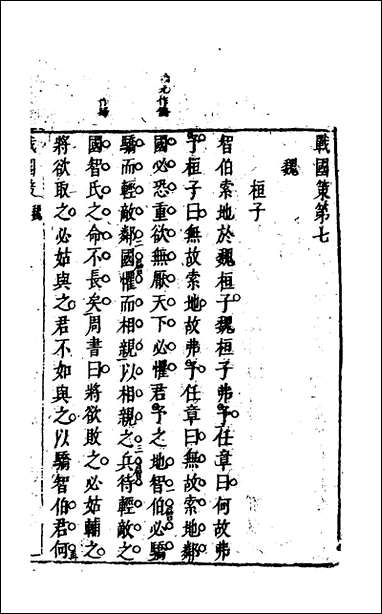 戰國策第七
魏
桓子
智伯索地於魏桓子魏桓子弗予任章曰何故弗
予桓子曰無故索地故弗予任章曰無故索地鄰
國必恐重欲無厭天下必懼君予之地智伯必驕
驕而輕敵鄰國懼而相親以相親之兵待輕敵之
國智氏之命不長矣周書曰將欲敗之必姑輔之
將欲取之必姑與之君不如與之以驕智伯君何
戰國策 魏